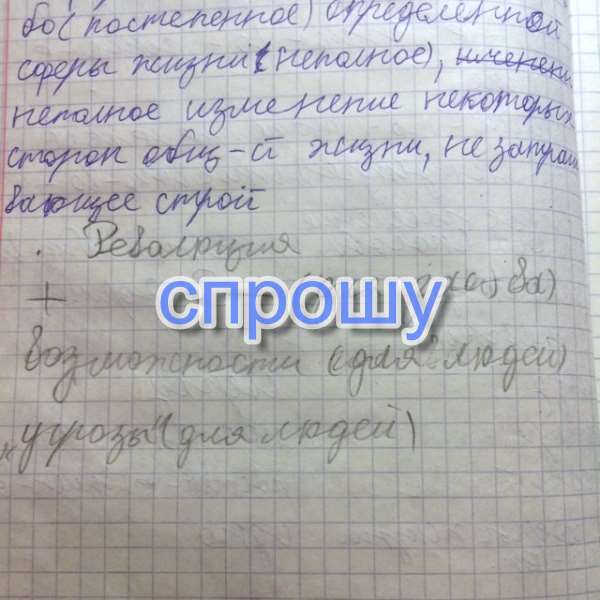 бо (постепенное) определенной
сферы жизни (неполное),
неполное изменение некоторых
сторон общ-й жизни, не затраги
вающее строй
Революция
+
спрошу
возможности (для людей)
"угрозы" (для людей)